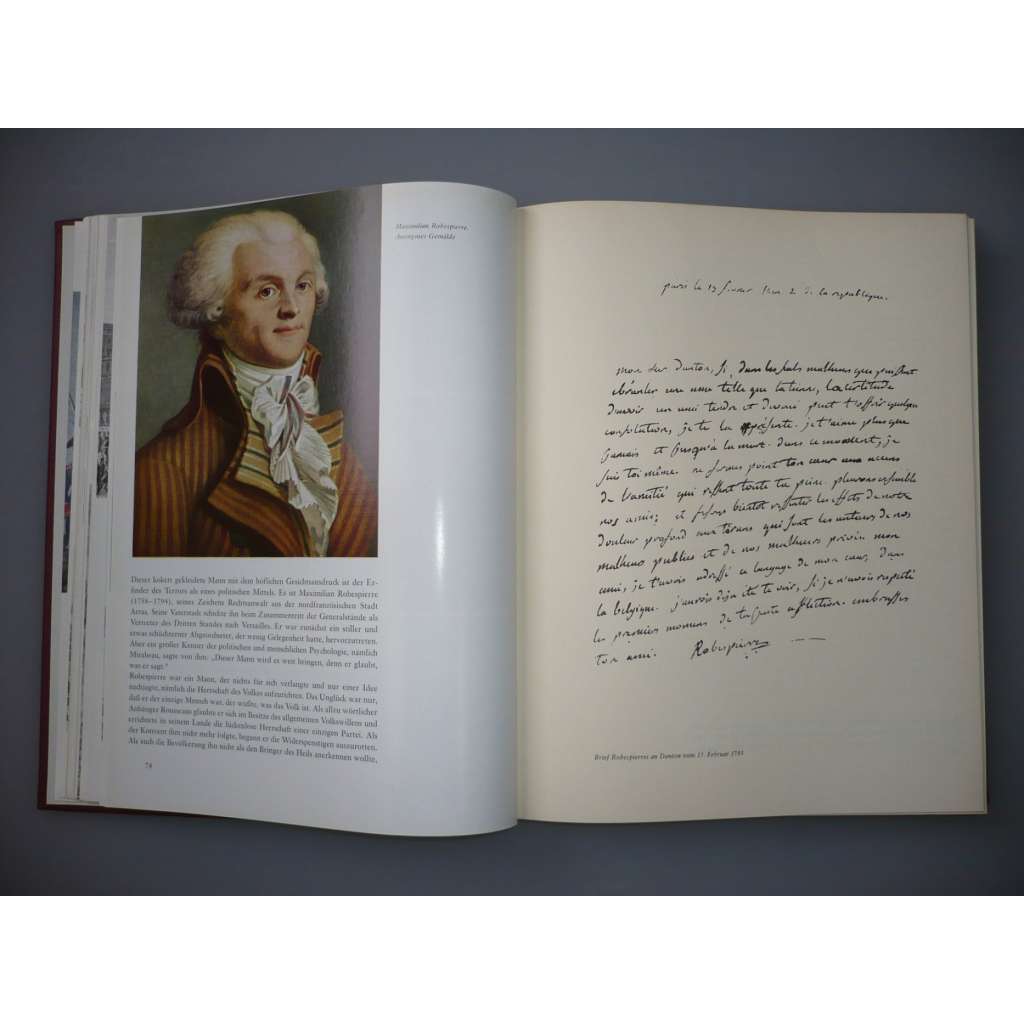 Maximilian Robespierre.
Anonymes Gemälde
Dieser kokett gekleidete Mann mit dem höflichen Gesichtsausdruck ist der Er-
finder des Terrors als eines politischen Mittels. Es ist Maximilian Robespierre
(1758–1794), seines Zeichens Rechtsanwalt aus der nordfranzösischen Stadt
Arras. Seine Vaterstadt schickte ihn beim Zusammentritt der Generalstände als
Vertreter des Dritten Standes nach Versailles. Er war zunächst ein stiller und
etwas schüchterner Abgeordneter, der wenig Gelegenheit hatte, hervorzutreten.
Aber ein großer Kenner der politischen und menschlichen Psychologie, nämlich
Mirabeau, sagte von ihm: „Dieser Mann wird es weit bringen, denn er glaubt,
was er sagt.“
Robespierre war ein Mann, der nichts für sich verlangte und nur einer Idee
nachjagte, nämlich die Herrschaft des Volkes aufzurichten. Das Unglück war nur,
daß er der einzige Mensch war, der wußte, was das Volk ist. Als allzu wörtlicher
Anhänger Rousseaus glaubte er sich im Besitze des allgemeinen Volkswillens und
errichtete in seinem Lande die lückenlose Herrschaft einer einzigen Partei. Als
der Konvent ihm nicht mehr folgte, begann er die Widerspenstigen auszurotten.
Als auch die Bevölkerung ihn nicht als den Bringer des Heils anerkennen wollte,
74
paris le 15 février 2 de la republique.
mon cher Danton, Si, dans les seuls malheurs que puissent
ébranler une ame telle que la tienne, la certitude
d'avoir un ami tendre et devoué peut t'offrir quelque
consolation, je te la présente. je t'aime plus que
jamais et jusqu'à la mort. dans ce moment, je
suis toi même. ne ferme point ton cœur aux accens
de l'amitié qui ressent toute ta peine. pleurons ensemble
nos amis; et faisons bientot ressentir les effets de notre
douleur profond aux tirans qui sont les auteurs de nos
malheurs publics et de nos malheurs privés. mon
ami, je t'avois adressé ce langage de mon cœur, dans
la belgique. j'aurois deja été te voir, si je n'avois respecté
les premiers momens de ta juste affliction. embrasses
ton ami. Robespierre
Brief Robespierres an Danton vom 15. Februar 1793